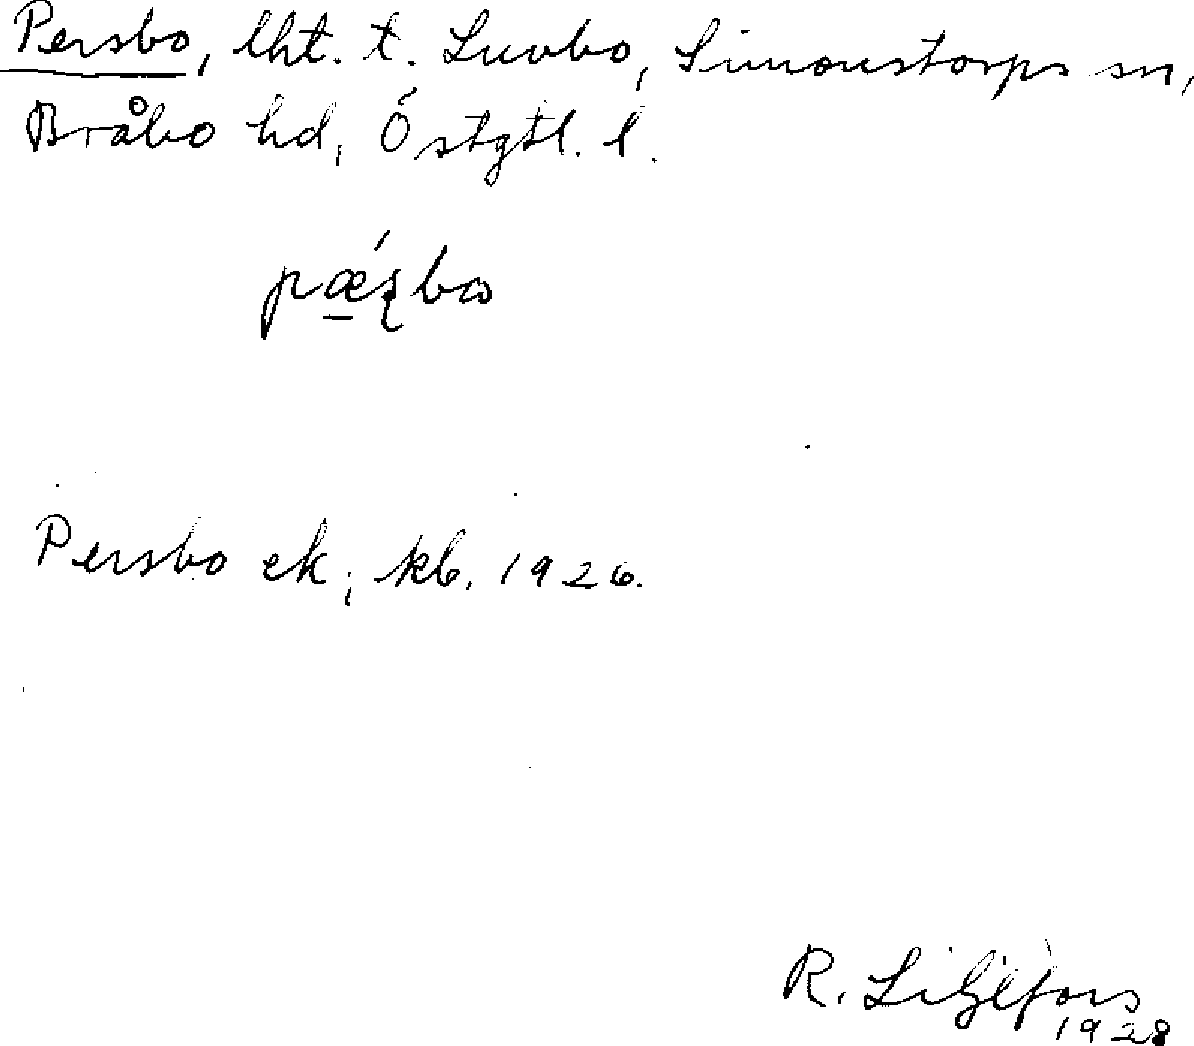 Persbo, lht. t. Luvbo, Simonstorps sn,
Bråbo hd, Östgtl. l.
pǽʂbω
Persbo ek; kb. 1926.
R. Liljefors
1928